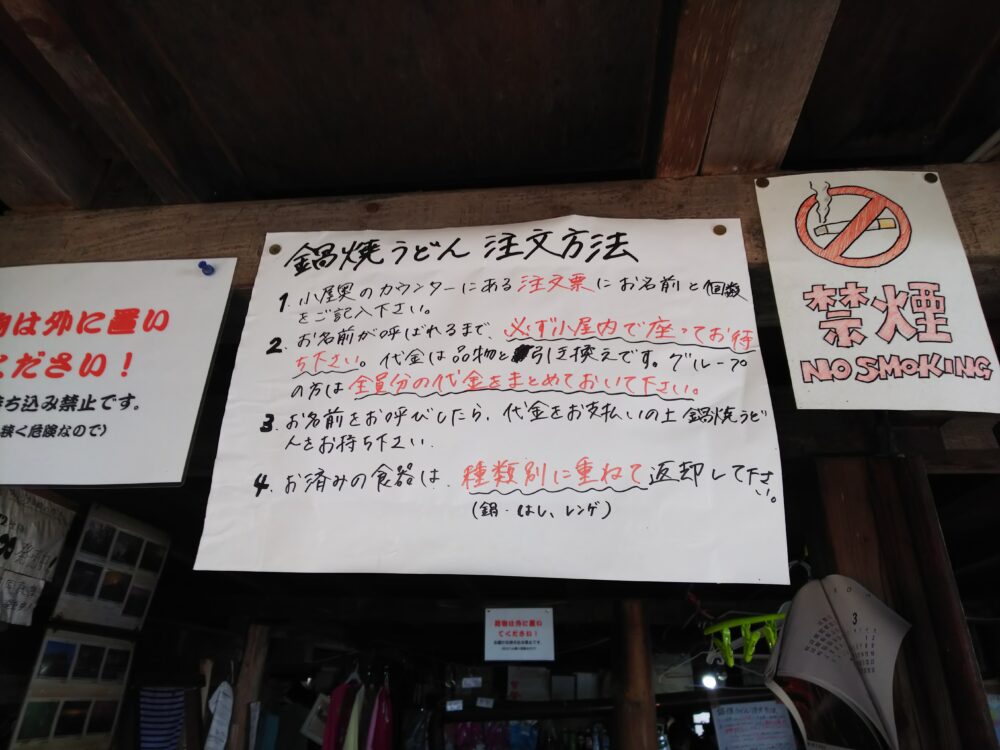 鍋焼うどん 注文方法
1. 小屋奥のカウンターにある注文票にお名前と個数
をご記入下さい。
2. お名前が呼ばれるまで、必ず小屋内で座ってお待
ち下さい。代金は品物と引き換えです。グループ
の方は全員分の代金をまとめておいて下さい。
3. お名前をお呼びしたら、代金をお支払いの上 鍋焼うど
んをお待ち下さい.
4. お済みの食器は、種類別に重ねて返却して下さ
い。
(鍋・はし、レンゲ)
物は外に置い
ください！
ち込み禁止です。
狭く危険なので）
禁煙
NO SMOKING
荷物は外に置い
てください！
3